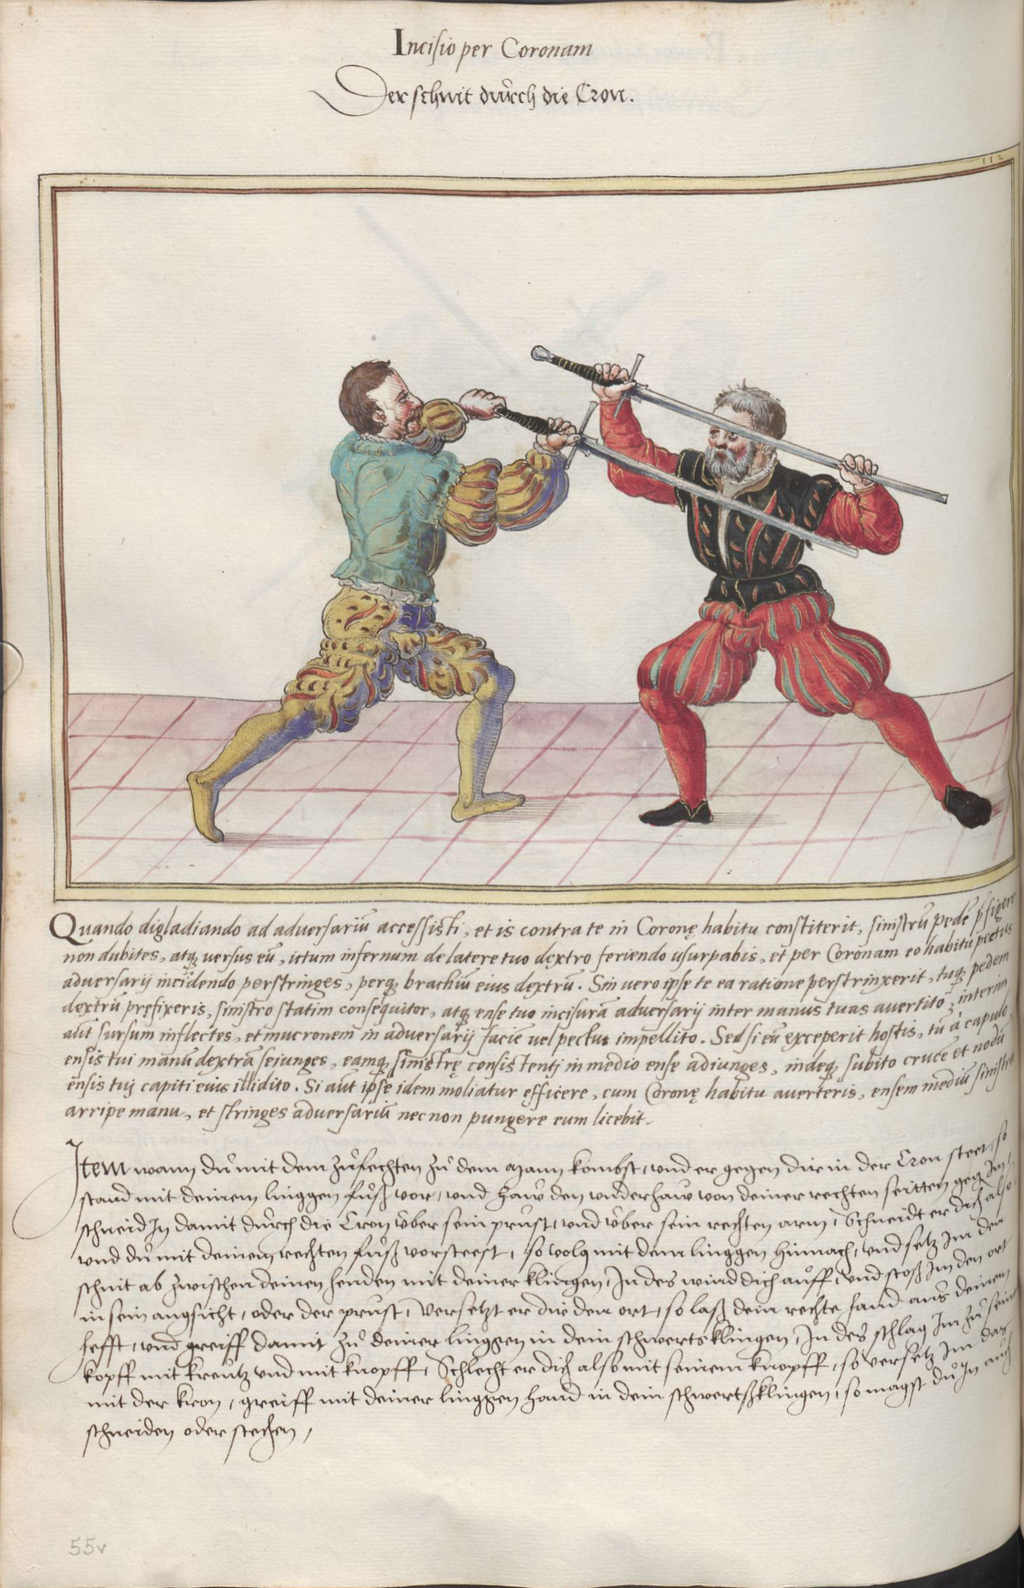 Incisio per Coronam
Der schnit dürch die Cron.
112
Quando digladiando ad adversariũ accessisti, et is contra te in Coronę habitu constiterit, sinistrũ pedẽ p̃figere
non dubites, atq; versus eũ, ictum infernum de latere tuo dextro feriendo usurpabis, et per Coronam eo habitu pectus
adversarij incidendo perstringes, perq; brachiũ eius dextrũ. Sin vero ipse te ea ratione perstrinxerit, tuq; pedem
dextrũ pręfixeris, sinistro statim consequitor, atq; ense tuo incisurã adversarij inter manus tuas avertito, interim
aũt sursum inflectes, et mucronem in adversarij faciẽ vel pectus impellito. Sed si eũ exceperit hostis, tũ à capulo
ensis tui manũ dextrã seiunges, eamq; sinistrę consistenti in medio ense adiunges, indeq; subito crucẽ et nodũ
ensis tuj capiti eius illidito. Si aũt ipse idem moliatur efficere, cum Coronę habitu averteris, ensem mediũ sinistra
arripe manu, et stringes adversariũ nec non pungere eum licebit.
Item wann dü mit dem züfechten zü dem Mann kombst, und er gegen dir in der Cron steet, so
stand mit deinem linggen füß vor, und haw den underhaw von deiner rechten seitten geg Im,
schneid In damit dürch die Cron über sein prüst, und über sein rechten arm, Schneidt er dich also
und dü mit deinem rechten füß vorsteest, so volg mit dem linggen hinnach, und setz Im den
schnit ab zwischen deinen henden mit deiner klingen, In des wind dich aüff, und stoß Im den ort
in sein angsicht, oder der prüst, Versetzt er dir den ort, so laß dein rechte hand aus deinem
hefft, und greiff damit zü deiner linggen in dein schwertsklingen, In des schlag Im zü sein
kopff mit kreütz und mit knopff, Schlecht er dich also mit seinem knopff, so versetz Im das
mit der kron, greiff mit deiner linggen hand in dein schwertsklingen, so magst dü In auch
schneiden oder stechen,
55v